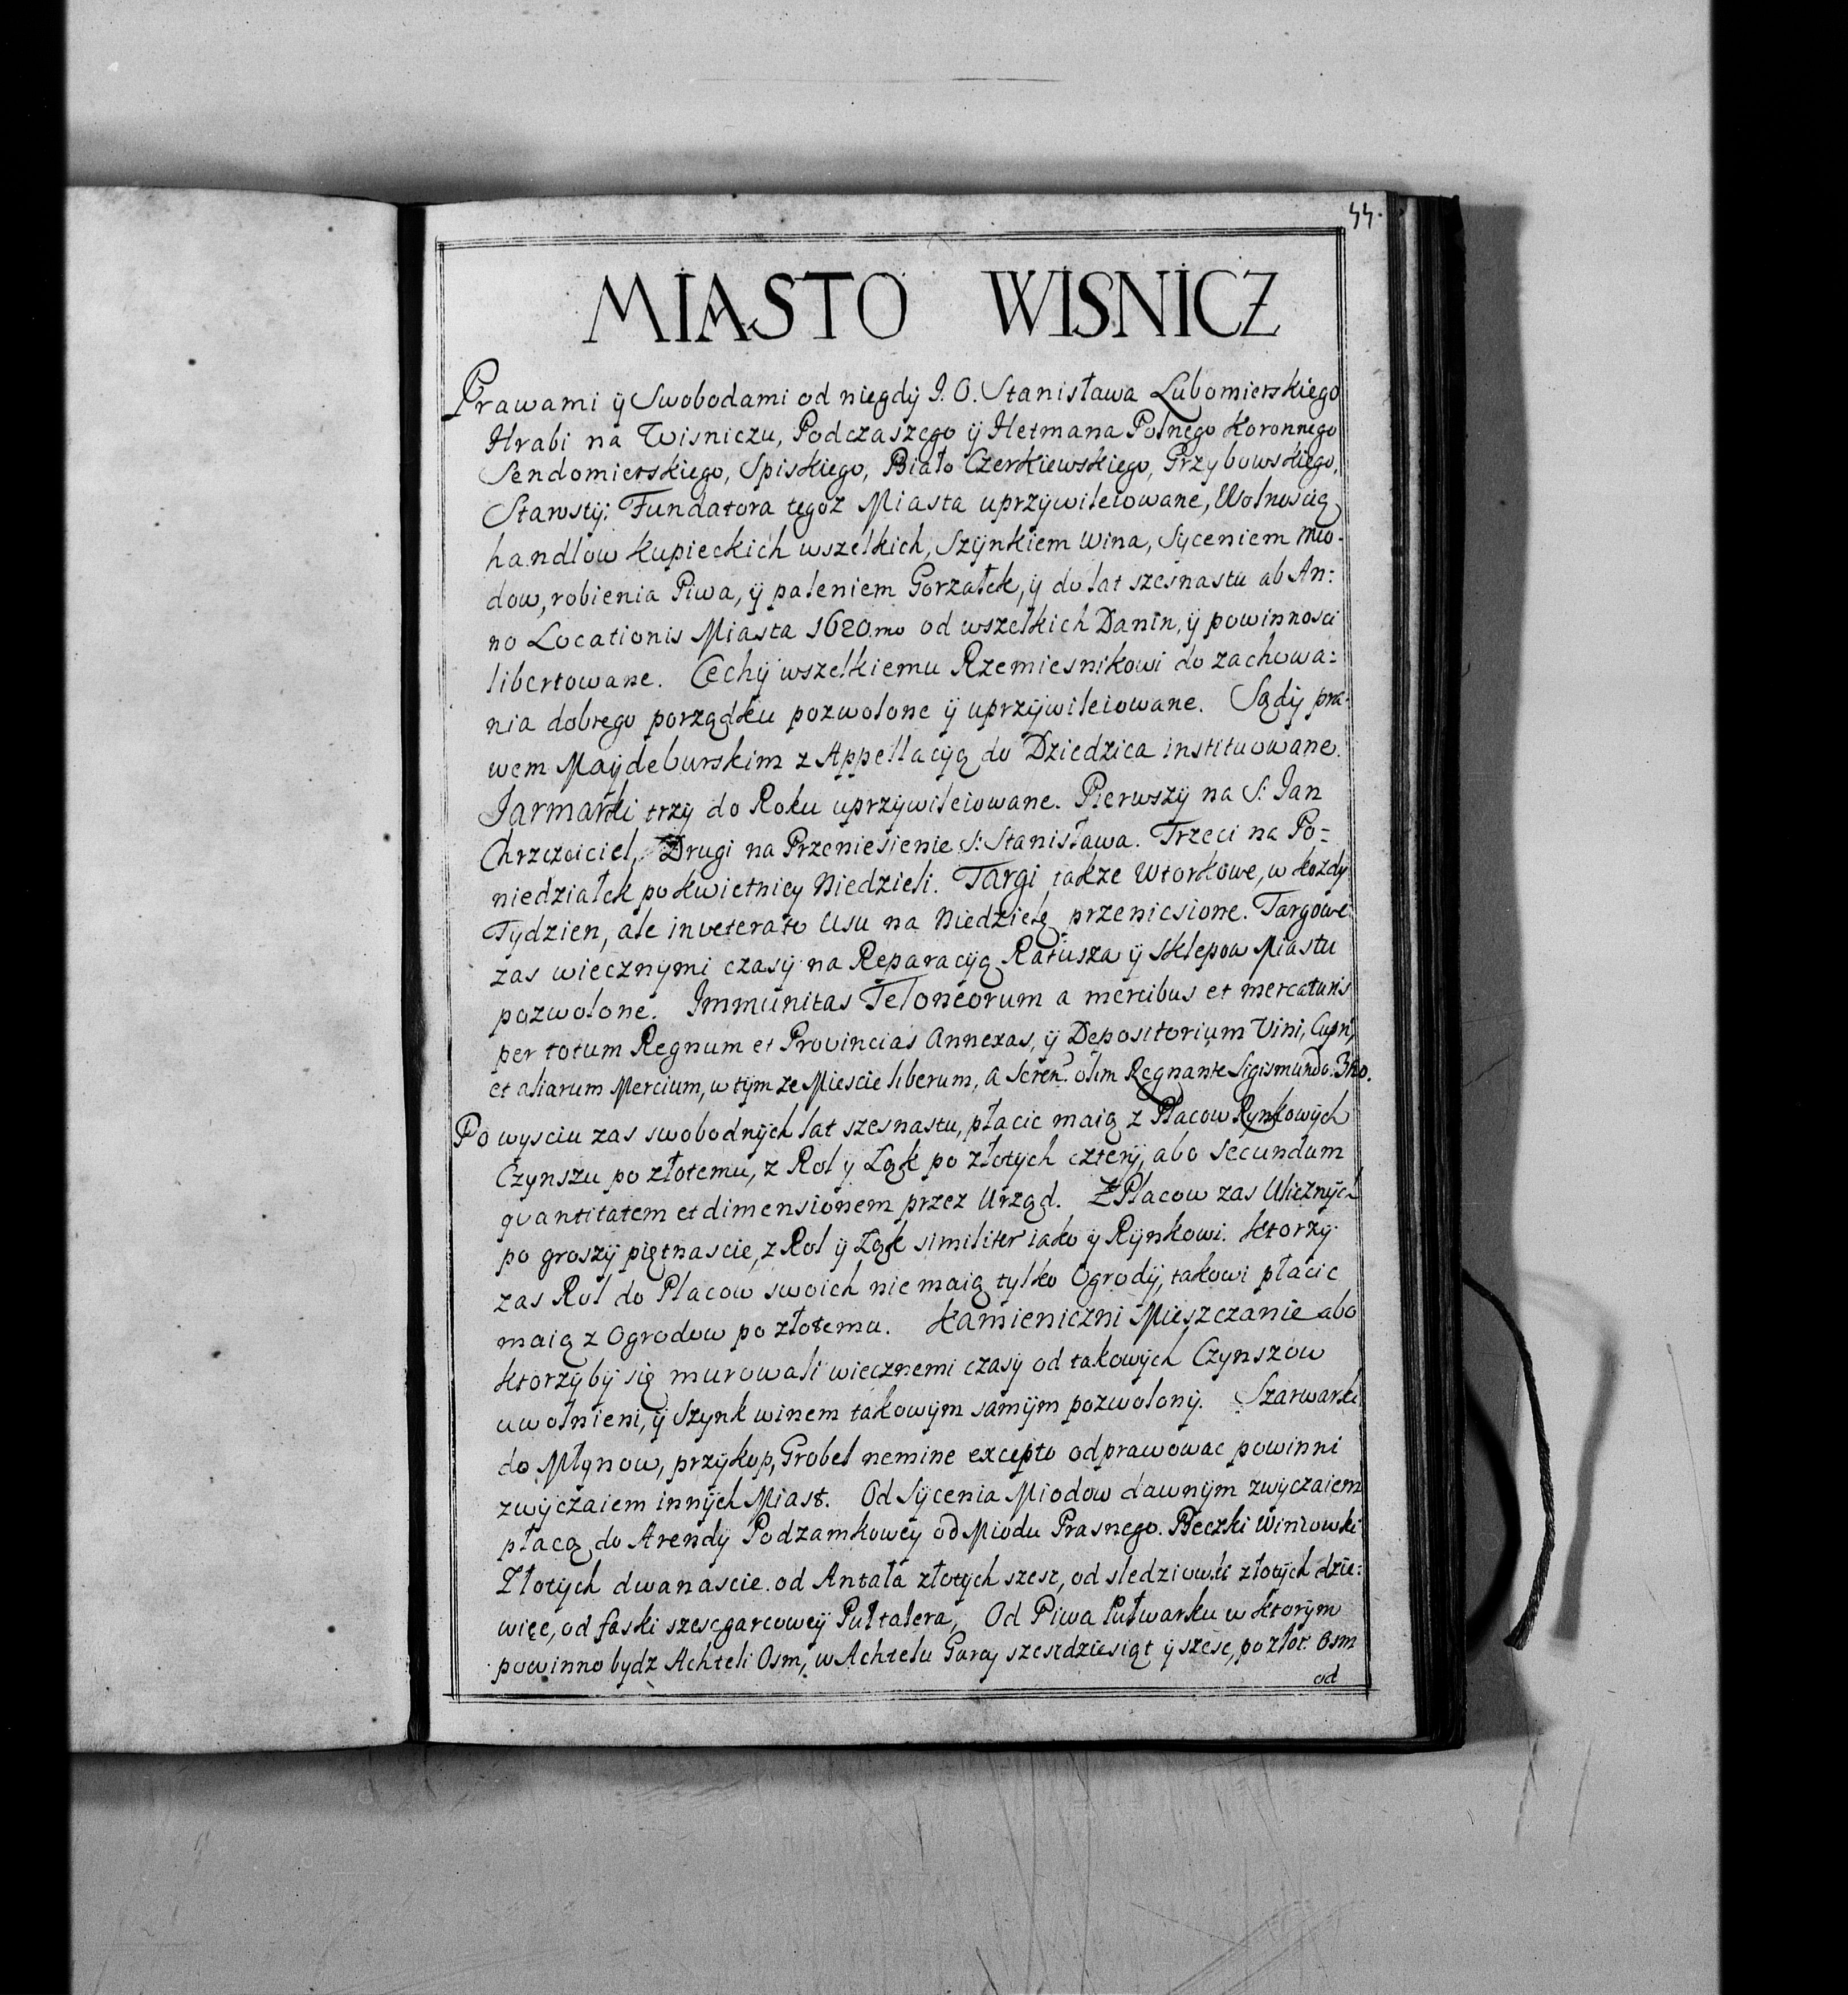 44.
MIASTO WISNICZ
Prawami ÿ Swobodami od niegdÿ J. O. Stanisława Lubomierskiego
Hrabi na Wisniczu, Podczaszego ÿ Hetmana Polnego Koronnego
Sendomierskiego, Spiskiego, Biało Czerkiewskiego, Przybowskiego,
Starostÿ: Fundatora tegoz Miasta uprzÿwileiowane, Wolnoscią
handlow Kupieckich wszelkich, Szÿnkiem Wina, Syceniem Mio-
dow, robienia Piwa, ÿ paleniem Gorzałek, ÿ do lat szesnastu ab An:
no Locationis Miasta 1620.mo od wszelkich Danin, ÿ powinnosci
libertowane. Cechÿ wszelkiemu Rzemiesnikowi do zachowa:
nia dobrego porządku pozwolone ÿ uprzÿwileiowane. Sądÿ pra:
wem Maÿdeburskim z Appellacÿą do Dziedzica instituowane.
Jarmarki trzy do Roku uprzÿwileiowane. Pierwszÿ na S: Jan
Chrzciciel, Drugi na Przeniesienie S: Stanisława. Trzeci na Po=
niedziałek po Kwietniey Niedzieli. Targi takze Wtorkowe, w kozdy
Tydzien, ale inveterato Usu na Niedzielę przeniesione. Targowe
zas wiecznymi czasÿ na Reparacÿą Ratusza ÿ sklepow Miastu
pozwolone. Immunitas Teloneorum a mercibus et mercaturis
per totum Regnum et Provincias Annexas, ÿ Depositorium Vini, Cupri,
et aliarum Mercium, w tÿm ze Miescie liberum, a Seren? olim Regnante Sigismundo 3tio.
Po wysciu zas swobodnÿch lat szesnastu, płacic maią z Placow Rynkowÿch
Czynszu po złotemu, z Rol y Ląk po złotych czterÿ, abo secundum
quantitatem et dimensionem przez Urząd. Z Placow zas Ulicznÿch
po groszÿ piętnascie, z Rol ÿ Ląk similiter iako ÿ Rÿnkowi. Ktorzÿ
zas Rol do Placow swoich nie maią tylko Ogrodÿ, takowi płacic
maią z Ogrodow po złotemu. Kamieniczni Mieszczanie abo
ktorzÿ bÿ się murowali wiecznemi czasÿ od takowÿch Czynszow
uwolnieni, ÿ Szynk winem takowÿm samÿm pozwolonÿ. Szarwarki
do Młynow, przÿkop, Grobel nemine excepto odprawowac powinni
zwÿczaiem innÿch Miast. Od Sÿcenia Miodow dawnÿm zwÿczaiem
płacą do Arendÿ Podzamkoweÿ od Miodu Prasnego. Beczki Winiowki
Złotych dwanascie. od Antała złotÿch szesc, od sledziowki złotÿch dzie:
więc, od faski szescgarcoweÿ Pułtalera, Od Piwa Putwarku w ktorÿm
powinno bydz Achteli Osm, w Achtelu Garcy szescdziesiąt ÿ szesc, po złot. Osm
od